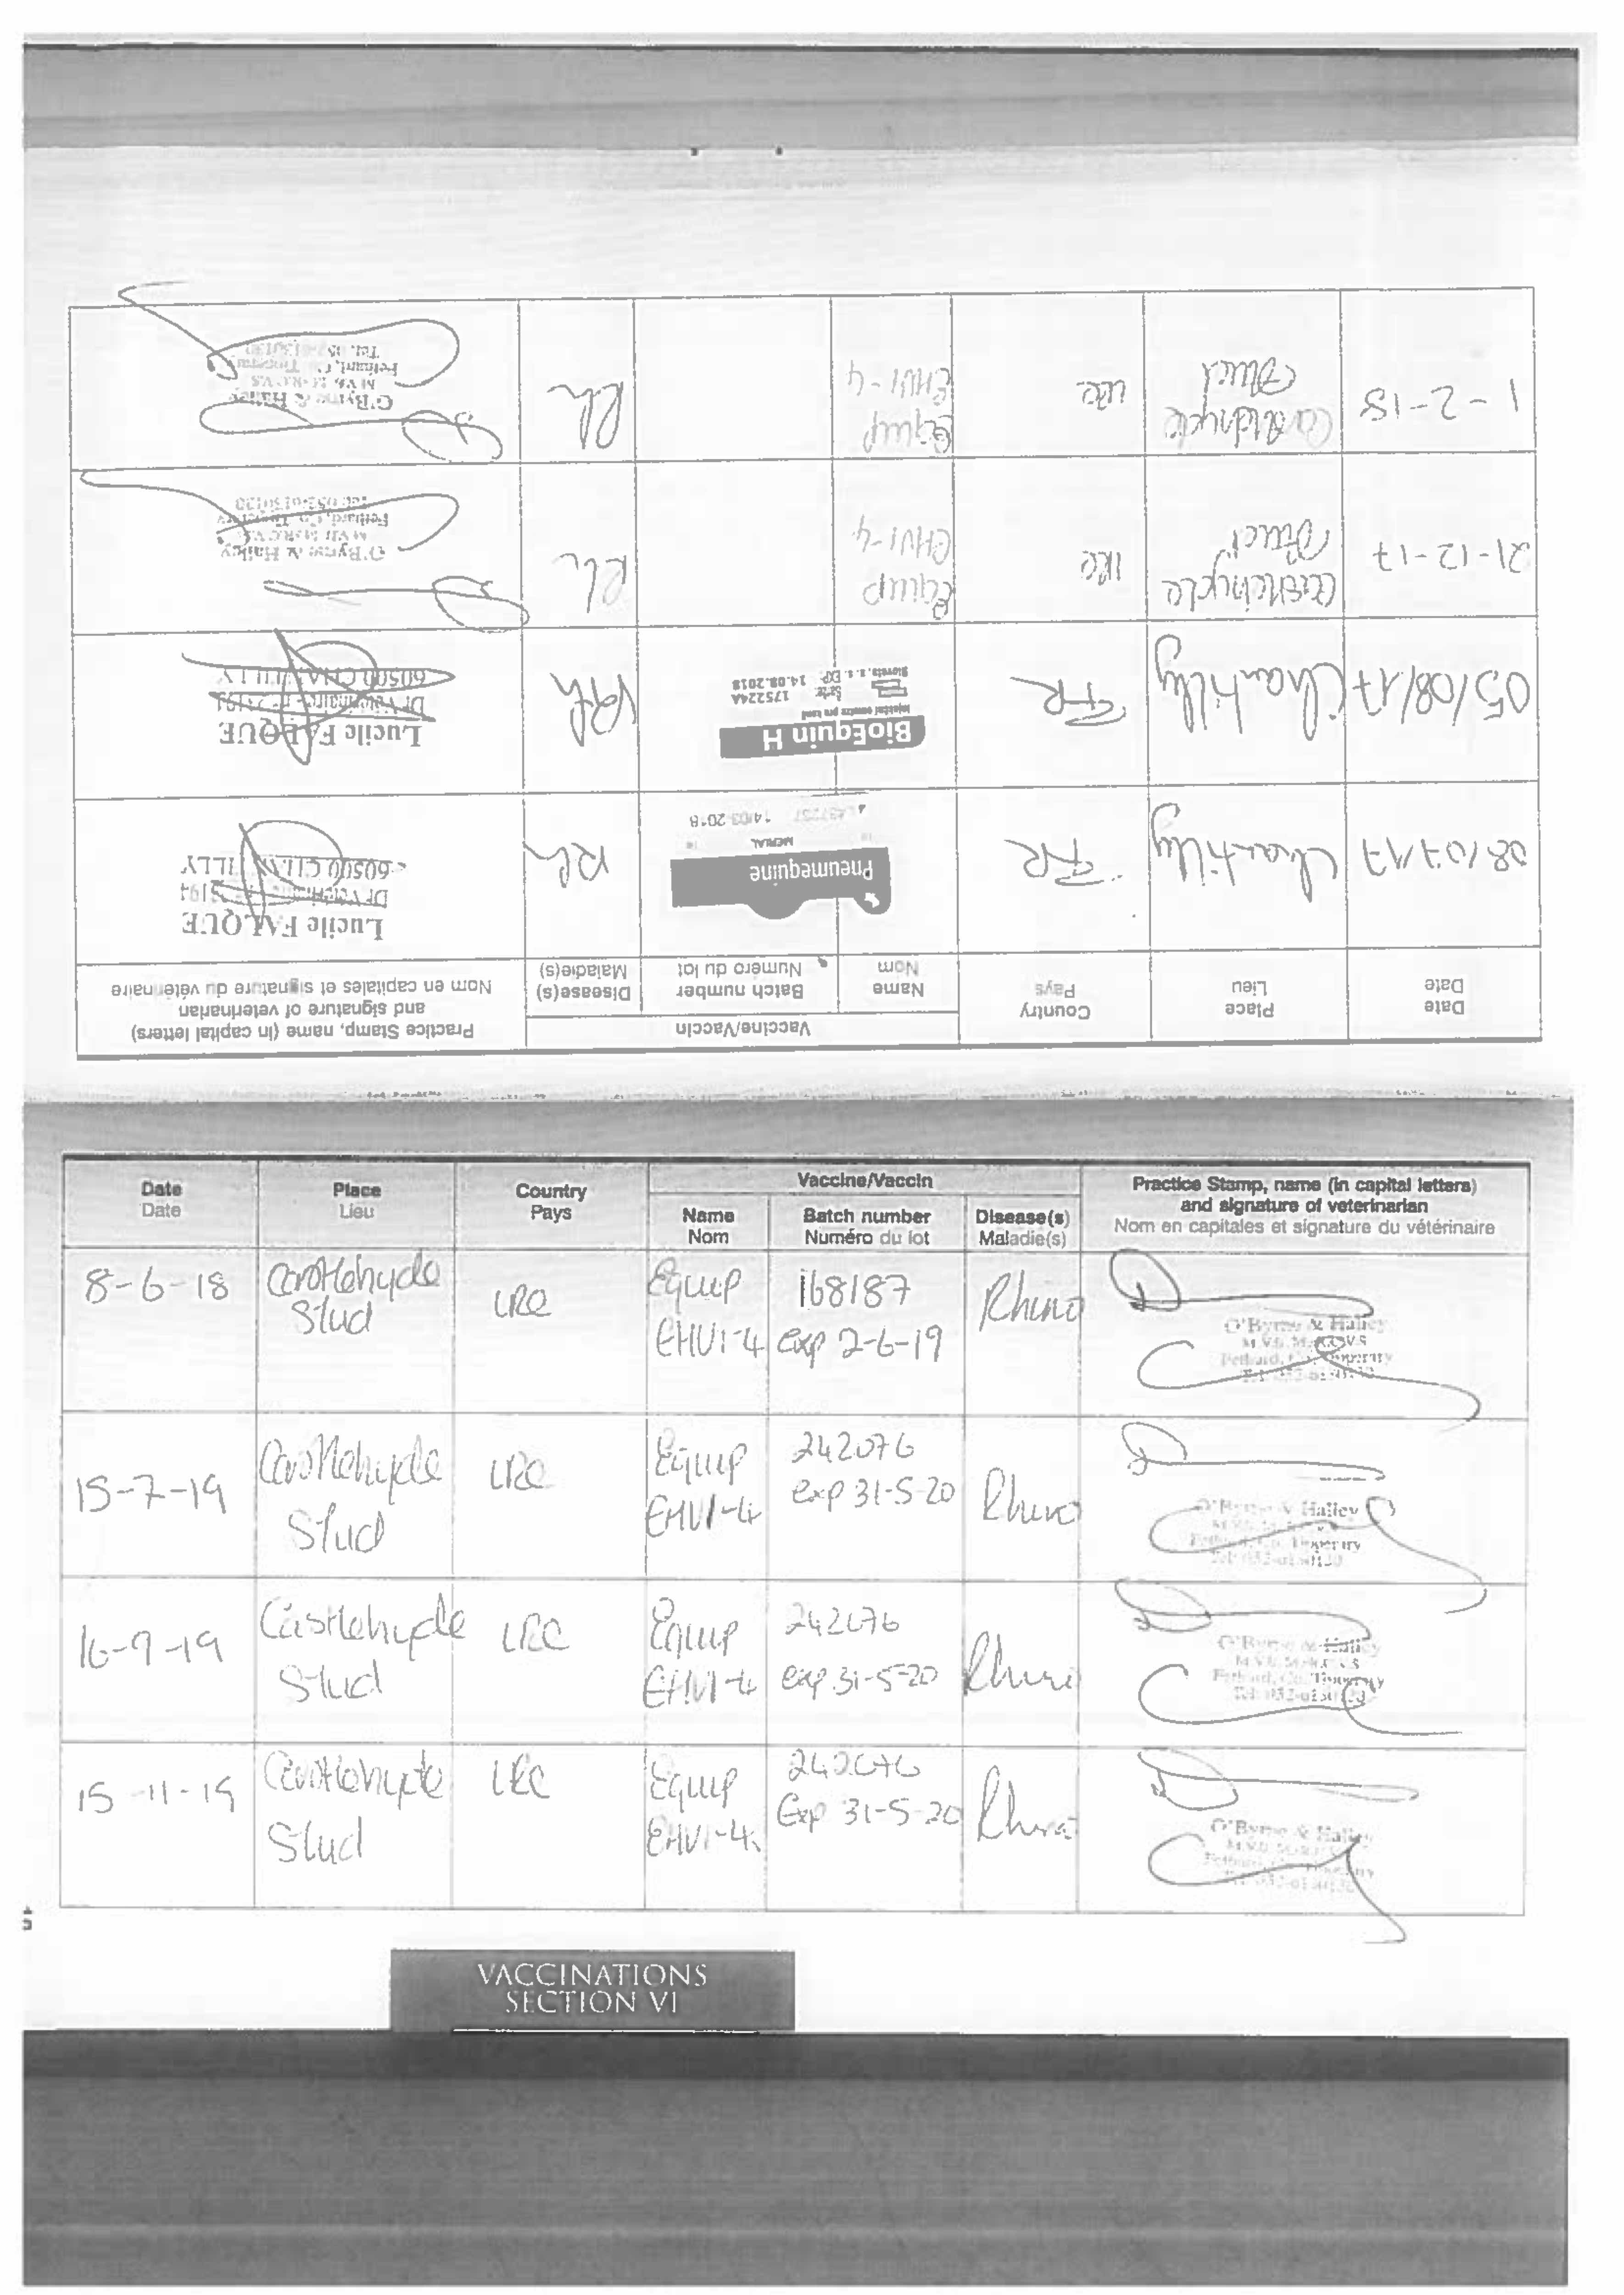 Date
Date
Place
Lieu
Country
Pays
Vaccine/Vaccin
Name
Nom
Batch number
Numéro du lot
Disease(s)
Maladie(s)
Practice Stamp, name (in capital letters)
and signature of veterinarian
Nom en capitales et signature du vétérinaire
08/07/17
Chantilly
FR
Pneumequine
MERIAL
14/03/2018
Rh
Lucile FALQUE
Dr Vétérinaire
60500 CHANTILLY
05/08/17
Chantilly
FR
BioEquin H
175224A
EXP. 14.08.2018
Rh
Lucile FALQUE
Dr Vétérinaire
60500 CHANTILLY
21-12-17
Castlehyde
Stud
IRE
Equip
EHV1-4
Rh
O'Byrne & Halley
Fethard, Co. Tipperary
1-2-18
Castlehyde
Stud
IRE
Equip
EHV1-4
Rh
O'Byrne & Halley
Fethard, Co. Tipperary
Date
Date
Place
Lieu
Country
Pays
Vaccine/Vaccin
Name
Nom
Batch number
Numéro du lot
Disease(s)
Maladie(s)
Practice Stamp, name (in capital letters)
and signature of veterinarian
Nom en capitales et signature du vétérinaire
8-6-18
Castlehyde
Stud
IRE
Equip
EHV1-4
168187
exp 2-6-19
Rhino
O'Byrne & Halley
Fethard, Co. Tipperary
15-7-19
Castlehyde
Stud
IRE
Equip
EHV1-4
242076
exp 31-5-20
Rhino
O'Byrne & Halley
Fethard, Co. Tipperary
16-9-19
Castlehyde
Stud
IRE
Equip
EHV1-4
242076
exp 31-5-20
Rhino
O'Byrne & Halley
Fethard, Co. Tipperary
15-11-19
Castlehyde
Stud
IRE
Equip
EHV1-4
242076
Exp 31-5-20
Rhino
O'Byrne & Halley
VACCINATIONS
SECTION VI